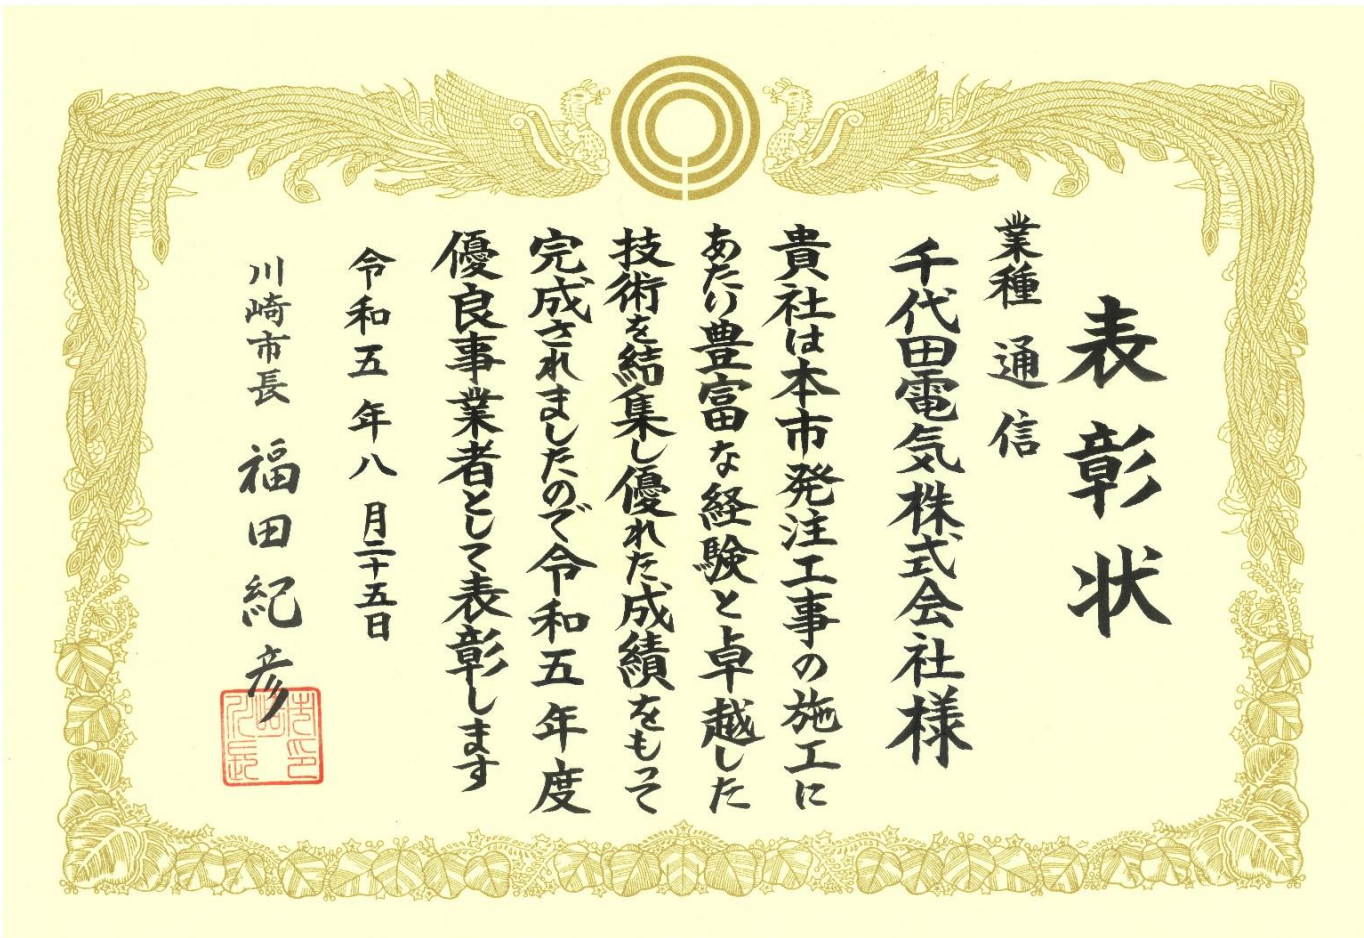 表彰状
業種 通信
千代田電気株式会社様
貴社は本市発注工事の施工に
あたり豊富な経験と卓越した
技術を結集し優れた成績をもって
完成されましたので令和五年度
優良事業者として表彰します
令和五年八月二十五日
川崎市長 福田紀彦
川崎市長之印